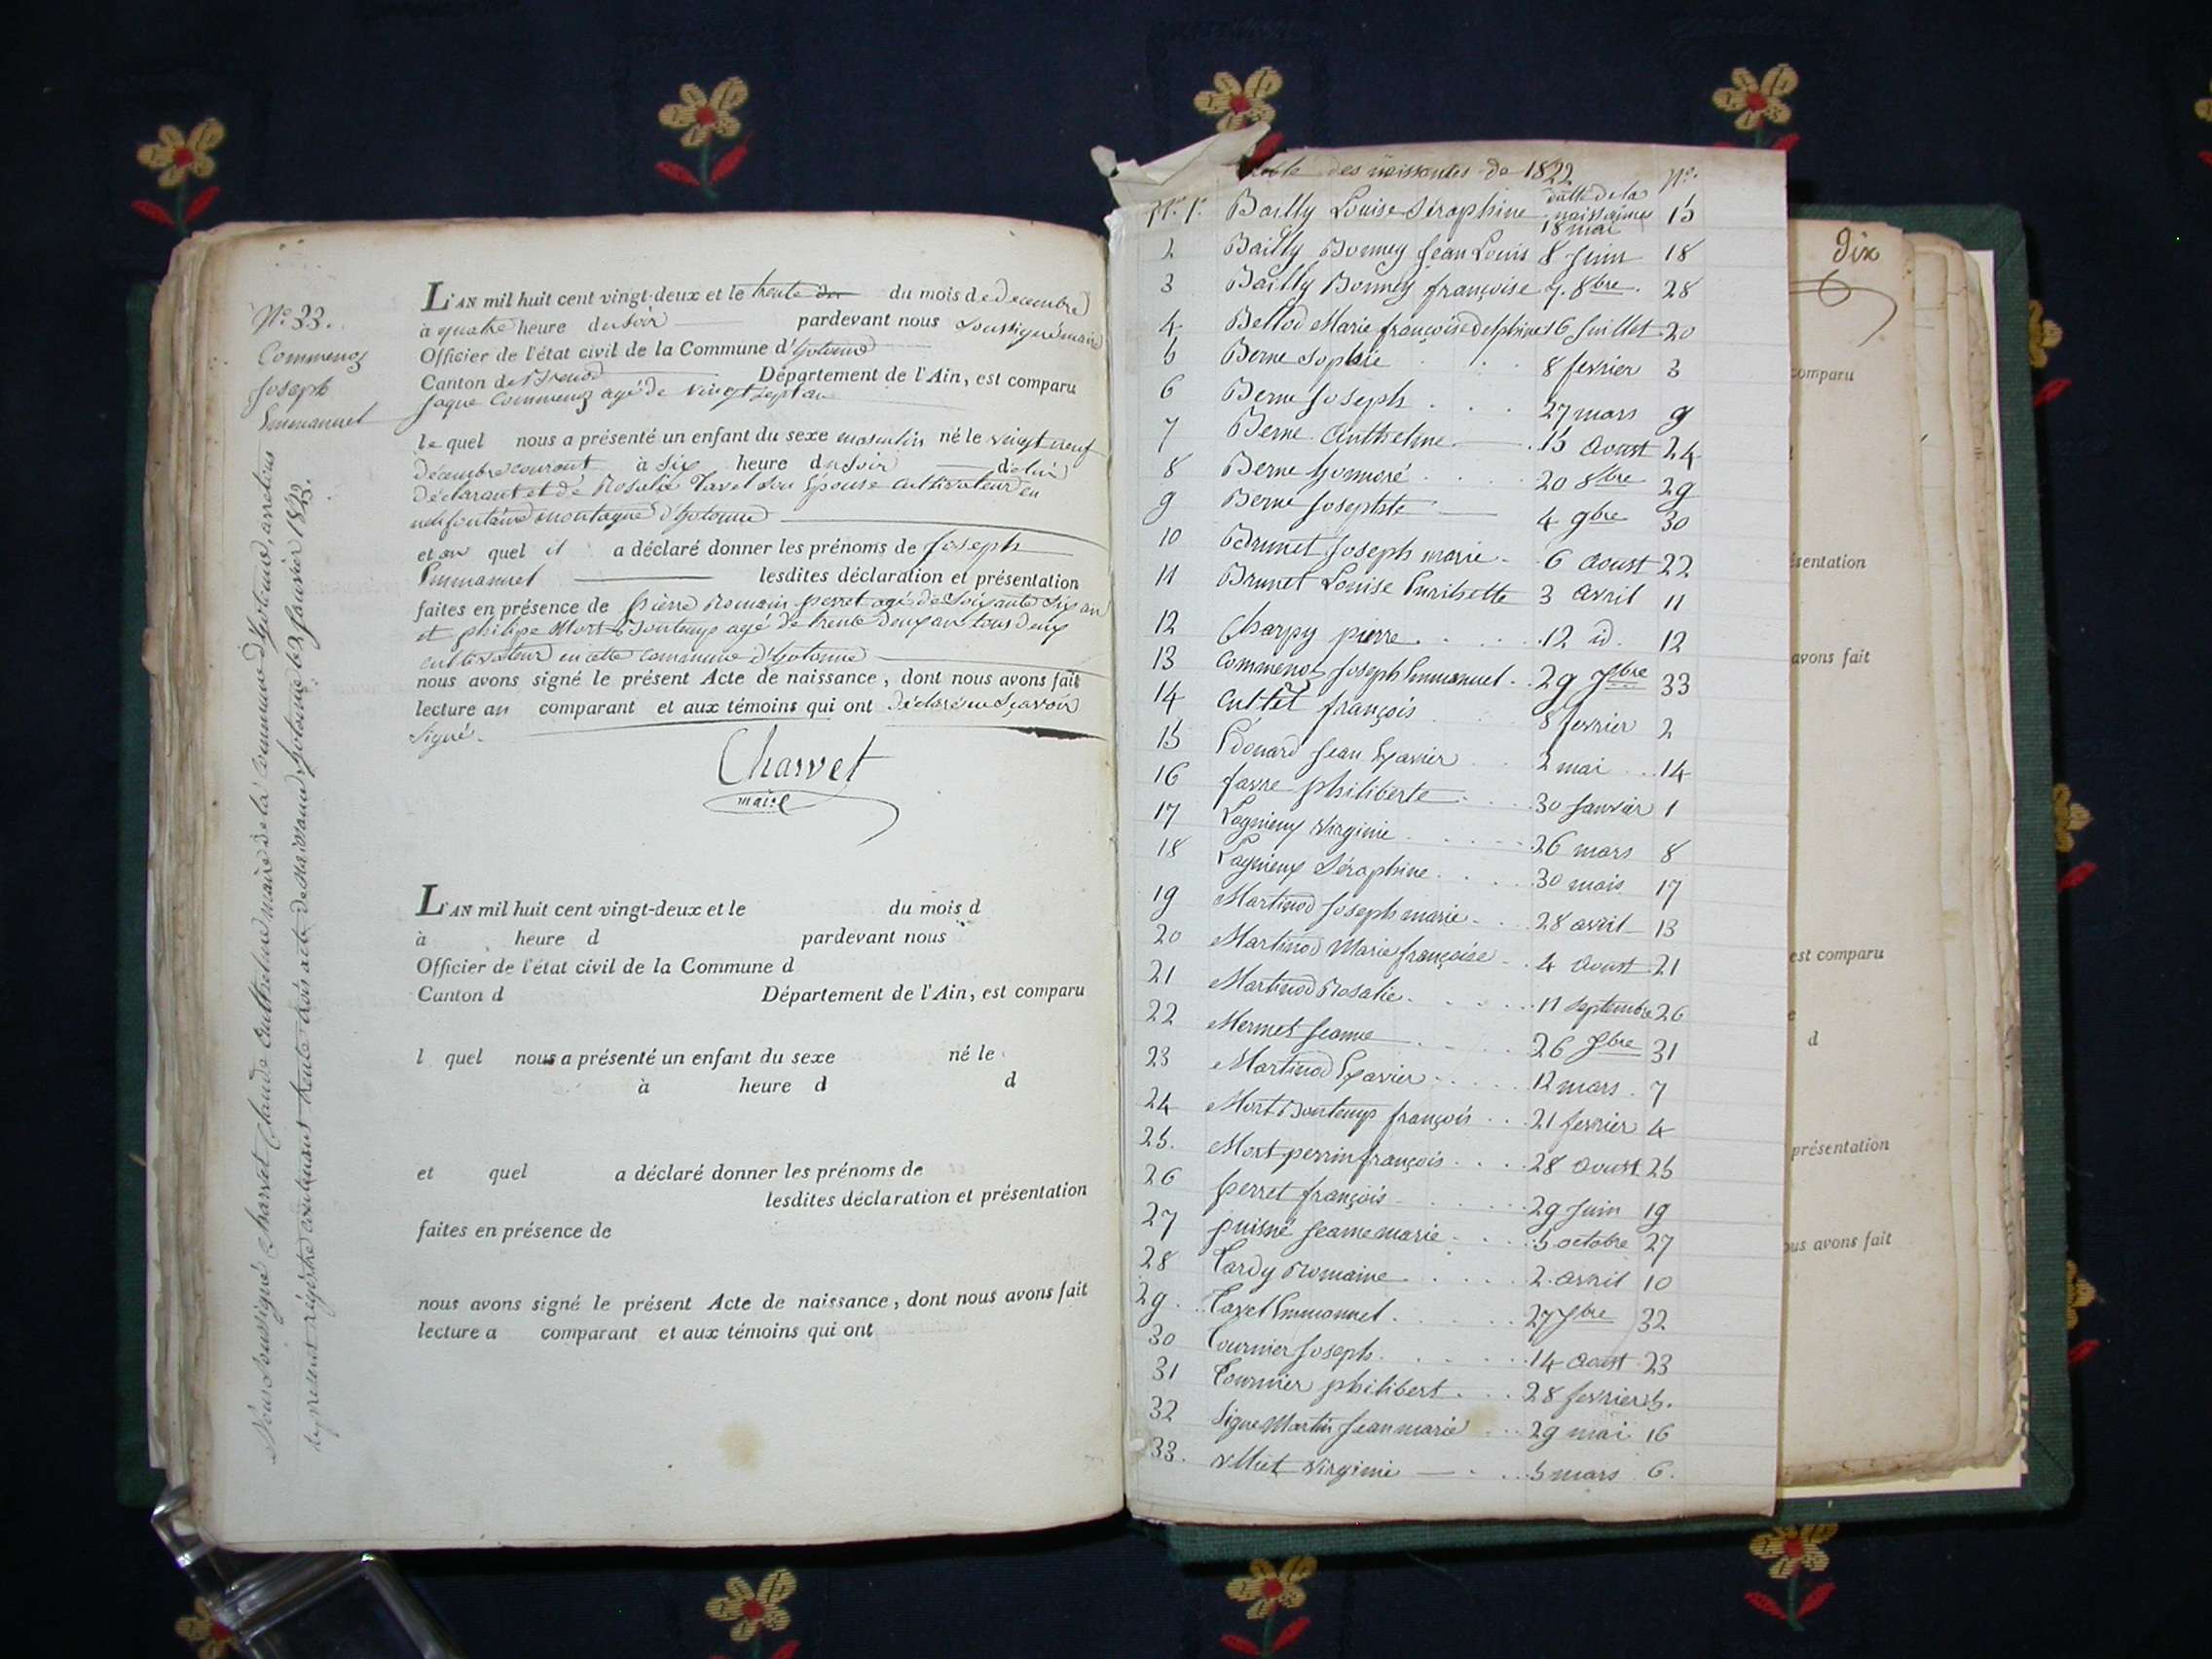 N.° 33.
Commenoz
Joseph
Emmanuel
L'AN mil huit cent vingt-deux et le trente du mois de decembre
à quatre heure du soir pardevant nous soussigné maire
Officier de l'état civil de la Commune d'hotonne
Canton de Brenod Département de l'Ain, est comparu
Jaque Commenoz agé de vingt sept an
le quel nous a présenté un enfant du sexe masculin né le vingt neuf
décembre courant à six heure du soir de lui
déclarant et de Rosalie Tavel son épouse cultivateur en
montagne d'hotonne
et au quel il a déclaré donner les prénoms de Joseph
Emmanuel lesdites déclaration et présentation
faites en présence de pierre Romain perret agé de soixante six an
et philipe Mort Bontemps agé de trente deux an tous deux
cultivateur en cette commune d'hotonne
nous avons signé le présent Acte de naissance, dont nous avons fait
lecture au comparant et aux témoins qui ont déclaré ne sçavoir
signé.
Charvet
maire
Nous soussigné Charvet Claude cultivateur maire de la commune d'hotonne, arretons
le present régistre contenant trente trois acte de naissance, hotonne le 2 janvier 1823.
L'AN mil huit cent vingt-deux et le du mois d
à heure d pardevant nous
Officier de l'état civil de la Commune d
Canton d Département de l'Ain, est comparu
l quel nous a présenté un enfant du sexe né le
à heure d d
et quel a déclaré donner les prénoms de
lesdites déclaration et présentation
faites en présence de
nous avons signé le présent Acte de naissance, dont nous avons fait
lecture a comparant et aux témoins qui ont
table des naissances de 1822 N.°
datte de la
naissances
N.° 1. Bailly Louise Séraphine 18 mai 15
2 Bailly Bonney Jean Louis 8 Juin 18
3 Bailly Bonney françoise 7. 8bre. 28
4 Bellod Marie françoise delphine 16 Juillet 20
5 Berne Sophie 8 fevrier 3
6 Berne Joseph 27 mars 9
7 Berne Anthelme 15 Aoust 24
8 Berne 20 8bre 29
9 Berne Josephte 4 9bre 30
10 Brunet Joseph marie 6 Aoust 22
11 Brunet Louise 3 Avril 11
12 Charpy pierre 12 id. 12
13 Commenoz Joseph Emmanuel 29 Xbre 33
14 Cultet françois 8 fevrier 2
15 Edouard Jean Xavier 2 mai 14
16 favre philiberte 30 Janvier 1
17 Lagnieux Virginie 26 mars 8
18 Lagnieux Séraphine 30 mais 17
19 Martinod Joseph marie 28 avril 13
20 Martinod Marie françoise 4 Aoust 21
21 Martinod Rosalie 11 septembre 26
22 Mermet Jeanne 26 Xbre 31
23 Martinod Xavier 12 mars 7
24 Mort Bontemps françois 21 fevrier 4
25. Mort perrin françois 28 Aoust 25
26 perret françois 29 Juin 19
27 puisné Jeanne marie 5 octobre 27
28 Tardy Romaine 2 avril 10
29. Tavel Emmanuel 27 Xbre 32
30 Tournier Joseph 14 Aoust 23
31 Tournier philibert 28 fevrier 5.
32 Martin Jean marie 29 mai 16
33. Virginie 5 mars 6.
dix
comparu
ésentation
avons fait
est comparu
d
présentation
ous avons fait